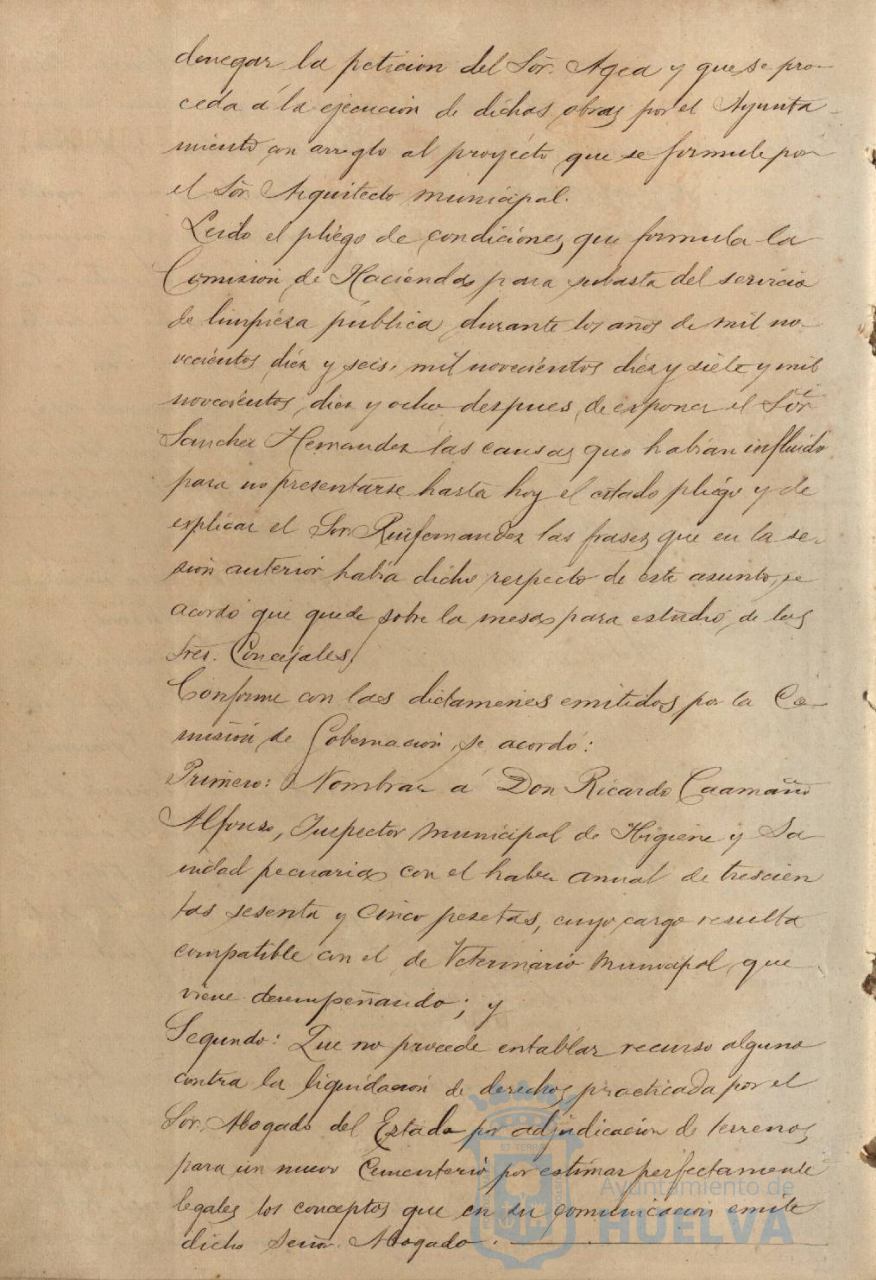 denegar la peticion del Sor. Agea y que se pro-
ceda á la ejecucion de dichas obras por el Ayunta-
miento con arreglo al proyecto que se formule por
el Sor. Arquitecto municipal.
Leido el pliego de condiciones que formula la
Comisión de Hacienda para subasta del servicio
de limpieza pública durante los años de mil no-
vecientos diez y seis, mil novecientos diez y siete y mil
novecientos diez y ocho despues de exponer el Sor.
Sanchez Hernandez las causas que habian influido
para no presentarse hasta hoy el citado pliego y de
explicar el Sor. Ruifernandez las frases que en la se-
sion anterior habia dicho respecto de este asunto, se
acordó que quede sobre la mesa para estudio de los
Sres. Concejales.
Conforme con los dictamenes emitidos por la Co-
misión de Gobernación, se acordó:
Primero: Nombrar á Don Ricardo Caamaño
Alfonso, Inspector municipal de Higiene y Sa
nidad pecuaria con el haber anual de trescien
tas sesenta y cinco pesetas, cuyo cargo resulta
compatible con el de Veterinario Municipal que
viene desempeñando; y
Segundo: Que no procede entablar recurso alguno
contra la liquidación de derechos practicada por el
Sor. Abogado del Estado por adjudicación de terrenos
para un nuevo Cementerio por estimar perfectamente
legales los conceptos que en su comunicación emite
dicho Señor Abogado.
Ayuntamiento de
HUELVA